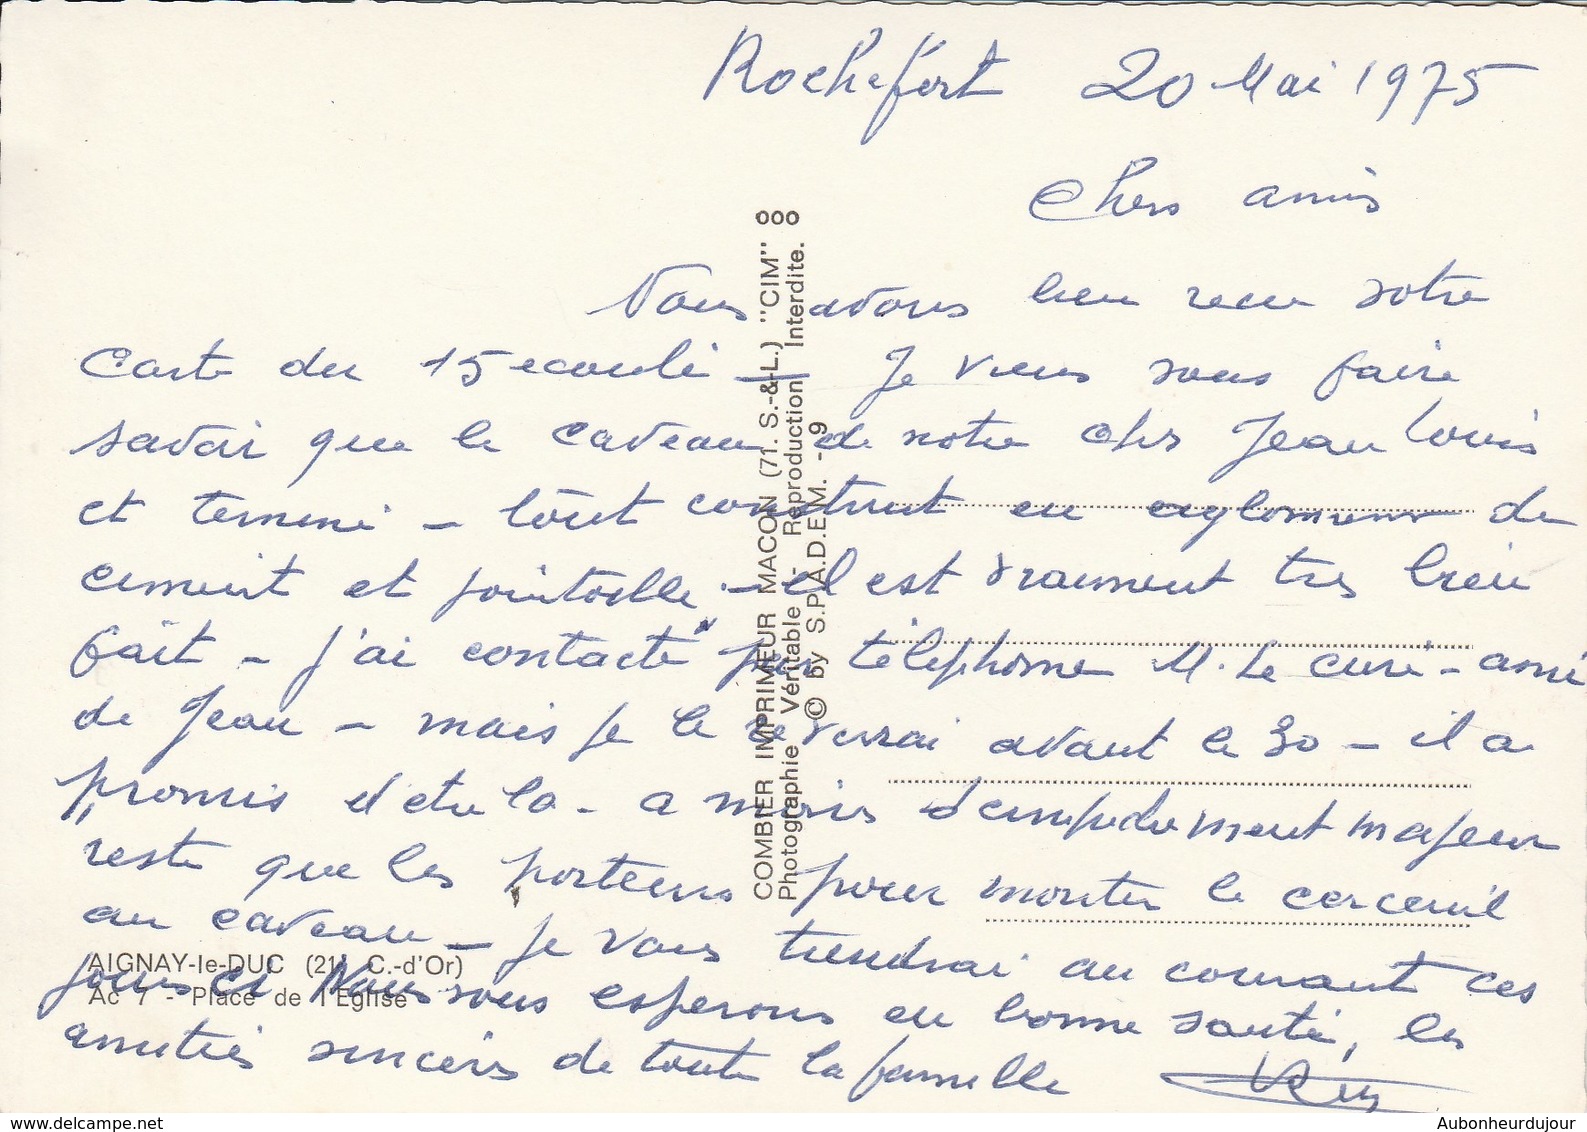 Rochefort 20 Mai 1975
Chers amis
Nous avons bien recu votre
carte du 15 ecoulé — Je viens vous faire
savoir que le caveau de notre cher Jean Louis
et terminé - tout construit en aglomerer de
ciment et pointoelle - Il est vraiment tres bien
fait - j'ai contacté par téléphone M. Le curé - ami
de Jean - mais je le reverrai avant le 30 - il a
promis d'etre la - a moins d'empechement majeur
reste que les porteurs pour monter le cerceuil
au caveau - je vous tiendrai au courant ces
jours ci Nous vous esperons en bonne santé, les
amitiés sincères de toute la famille
COMBIER IMPRIMEUR MACON (71. S.-&-L.) "CIM"
Photographie Véritable - Reproduction Interdite.
© by S.P.A.D.E.M. - 9
AIGNAY-le-DUC (21. C.-d'Or)
Ac 7 - Place de l'Eglise
Aubonheurdujour